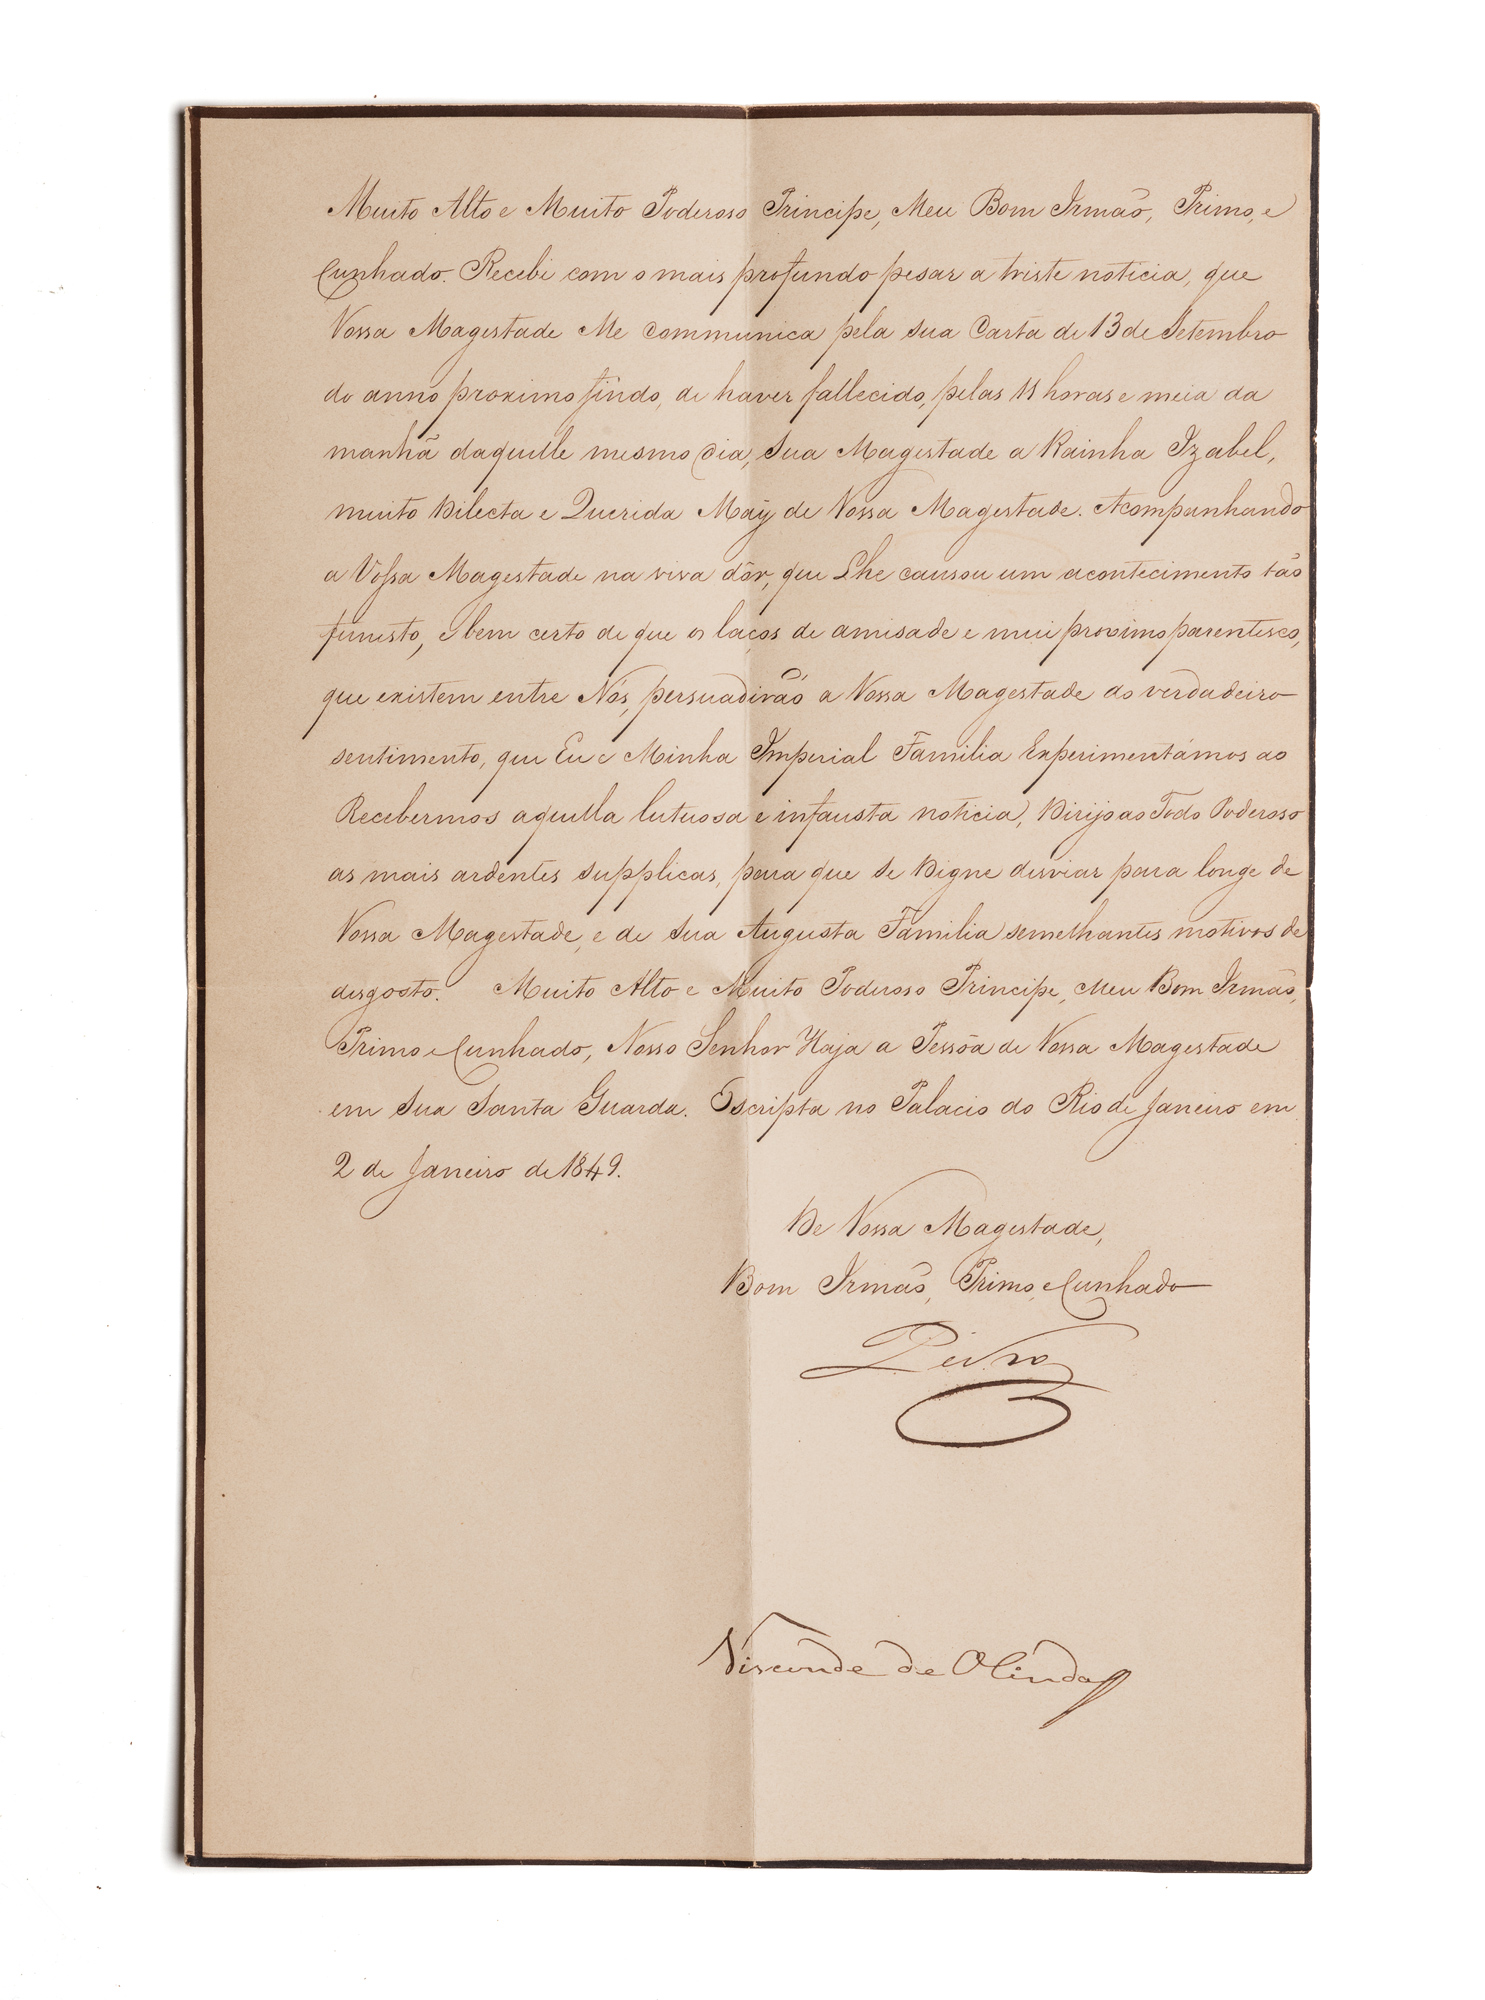 Muito Alto e Muito Poderoso Principe, Meu Bom Irmão, Primo, e
Cunhado. Recebi com o mais profundo pesar a triste noticia, que
Vossa Magestade Me communica pela sua Carta de 13 de Setembro
do anno proximo findo, de haver fallecido, pelas 11 horas e meia da
manhã daquelle mesmo dia, Sua Magestade a Rainha Izabel,
muito Dilecta e Querida Maÿ de Vossa Magestade. Acompanhando
a Vossa Magestade na viva dôr, que Lhe causou um acontecimento tão
funesto, e bem certo de que os laços de amisade e mui proximo parentesco,
que existem entre Nós, persuadirão a Vossa Magestade do verdadeiro
sentimento, que Eu e Minha Imperial Familia Experimentámos ao
Recebermos aquella lutuosa e infausta noticia, Dirijo ao Todo Poderoso
as mais ardentes supplicas, para que se Digne desviar para longe de
Vossa Magestade, e de Sua Augusta Familia semelhantes motivos de
desgosto. Muito Alto e Muito Poderoso Principe, Meu Bom Irmão,
Primo e Cunhado, Nosso Senhor Haja a Pessôa de Vossa Magestade
em Sua Santa Guarda. Escripta no Palacio do Rio de Janeiro em
2 de Janeiro de 1849.
De Vossa Magestade,
Bom Irmão, Primo, e Cunhado
Pedro
Visconde de Olinda